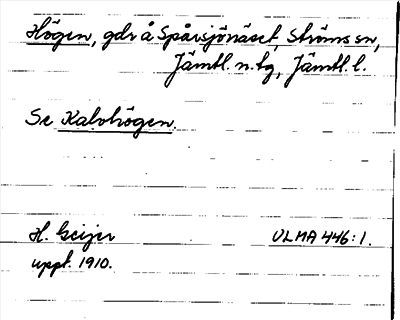 Högen, gdr å Spåisjönäset, Ströms sn,
Jämtl. n. tg, Jämtl. l.
Se Kalvhögen.
H. Geijer ULMA 446:1.
uppt. 1910.